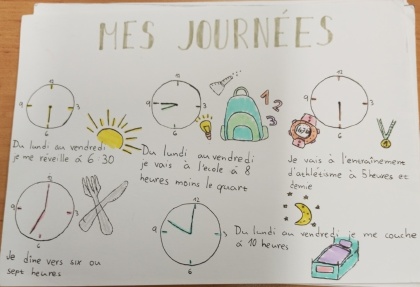 MES JOURNÉES
12
9
3
6
Du lundi au vendredi
je me réveille à 6 30
12
9
3
6
1
2
3
Du lundi au vendredi
je vais à l'école à 8
heures moins le quart
12
9
3
6
Je vais à l'entraînement
d'athlétisme à 5 heures et
demie
12
9
3
6
Je dîne vers six ou
sept heures
12
9
3
6
Du lundi au vendredi je me couche
à 10 heures